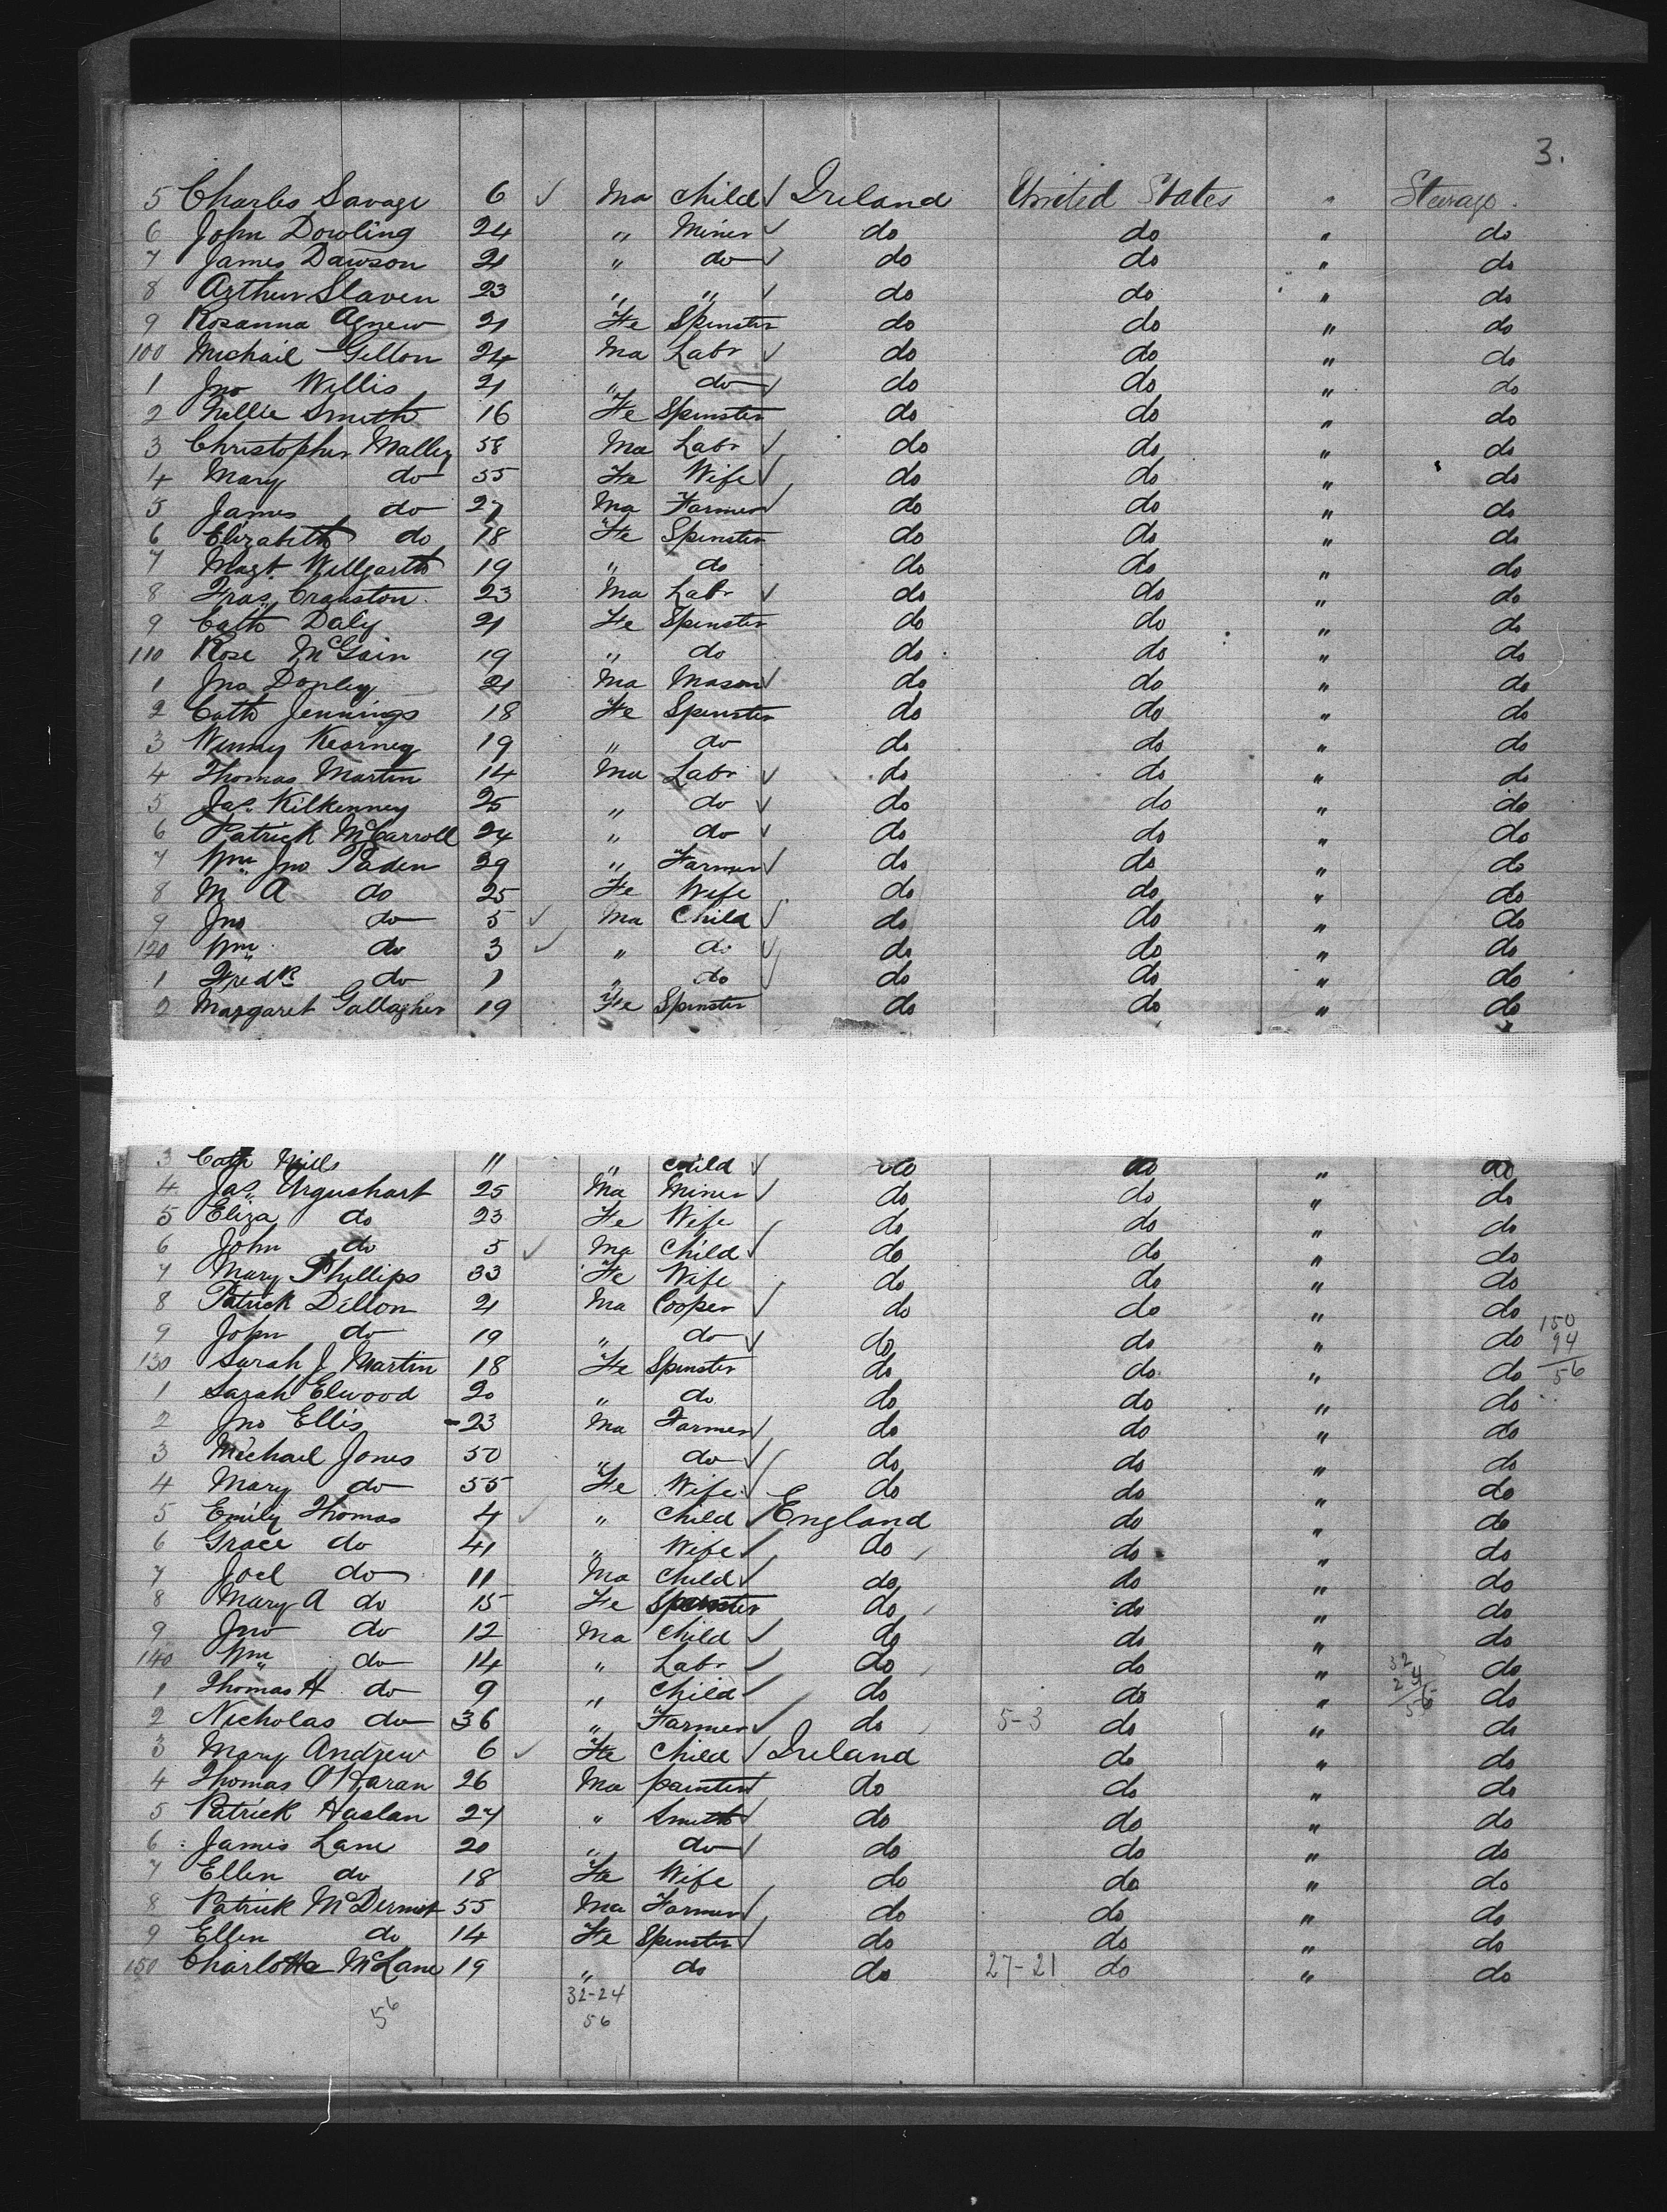 3.
5 Charles Savage 6 ✓ Ma Child ✓ Ireland United States " Steerage
6 John Dowling 24 " Miner ✓ do do " do
7 James Dawson 21 " do ✓ do do " do
8 Arthur Slaven 23 " " ✓ do do " do
9 Rosanna Agnew 21 Fe Spinster do do " do
100 Michail Gillon 24 Ma Labr ✓ do do " do
1 Jno Willis 21 " do ✓ do do " do
2 Nellie Smith 16 Fe Spinster do do " do
3 Christopher Malley 58 Ma Labr ✓ do do " do
4 Mary do 55 Fe Wife ✓ do do " do
5 James do 27 Ma Farmer ✓ do do " do
6 Elizabeth do 18 Fe Spinster do do " do
7 Magt. Wellgarth 19 " do do do " do
8 Fras Cranston 23 Ma Labr ✓ do do " do
9 Cath Daly 21 Fe Spinster do do " do
110 Rose McGain 19 " do do do " do
1 Jno Donley 21 Ma Mason ✓ do do " do
2 Cath Jennings 18 Fe Spinster do do " do
3 Winny Kearney 19 " do do do " do
4 Thomas Martin 14 Ma Labr ✓ do do " do
5 Jas. Kilkenney 25 " do ✓ do do " do
6 Patrick McCarroll 24 " do ✓ do do " do
7 Wm Jno Paden 29 " Farmer ✓ do do " do
8 M A do 25 Fe Wife do do " do
9 Jno do 5 ✓ Ma Child ✓ do do " do
120 Wm do 3 ✓ " do ✓ do do " do
1 Fredk do 1 " do ✓ do do " do
2 Margaret Gallagher 19 Fe Spinster do do " do
3 Cath Mills 11 " Child ✓ do do " do
4 Jas Urquhart 25 Ma Miner ✓ do do " do
5 Eliza do 23 Fe Wife do do " do
6 John do 5 ✓ Ma Child ✓ do do " do
7 Mary Phillips 33 Fe Wife do do " do
8 Patrick Dillon 21 Ma Cooper ✓ do do " do
9 John do 19 " do ✓ do do " do 150
130 Sarah J Martin 18 Fe Spinster do do " do 94
56
1 Sarah Elwood 20 " do do do " do
2 Jno Ellis 23 Ma Farmer ✓ do do " do
3 Michael Jones 50 " do ✓ do do " do
4 Mary do 55 Fe Wife ✓ do do " do
5 Emily Thomas 4 ✓ " Child ✓ England do " do
6 Grace do 41 " Wife ✓ do do " do
7 Joel do 11 Ma Child ✓ do do " do
8 Mary A do 15 Fe Spinster do do " do
9 Jno do 12 Ma Child ✓ do do " do
140 Wm do 14 " Labr ✓ do do " 32 do
1 Thomas H do 9 " Child ✓ do do " 24 do
56
2 Nicholas do 36 " Farmer ✓ do 5-3 do " do
3 Mary Andrew 6 ✓ Fe Child ✓ Ireland do " do
4 Thomas O'Haran 26 Ma painter ✓ do do " do
5 Patrick Haslan 27 " Smith ✓ do do " do
6 James Lane 20 " do ✓ do do " do
7 Ellen do 18 Fe Wife do do " do
8 Patrick McDermot 55 Ma Farmer ✓ do do " do
9 Ellen do 14 Fe Spinster ✓ do do " do
150 Charlotte McLane 19 " do do 27-21 do " do
32-24
56 56